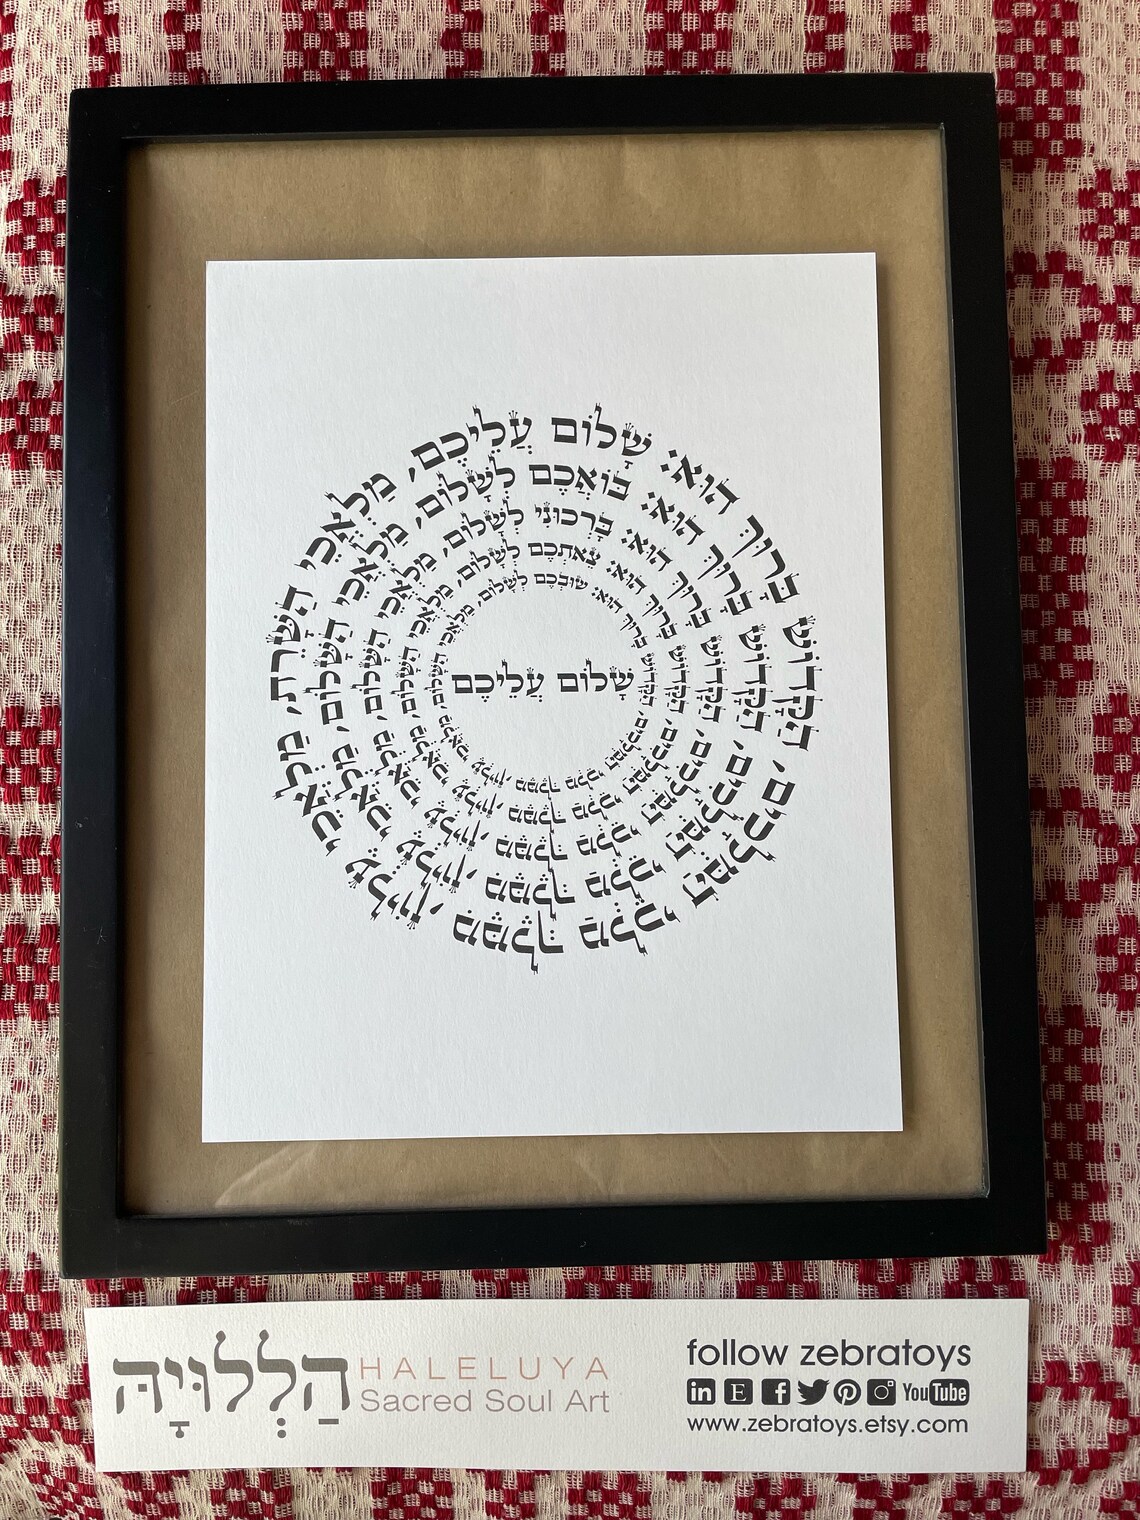 שָׁלוֹם עֲלֵיכֶם, מַלְאֲכֵי הַשָּׁרֵת, מַלְאֲכֵי עֶלְיוֹן, מִמֶּלֶךְ מַלְכֵי הַמְּלָכִים, הַקָּדוֹשׁ בָּרוּךְ הוּא:
בּוֹאֲכֶם לְשָׁלוֹם, מַלְאֲכֵי הַשָּׁלוֹם, מַלְאֲכֵי עֶלְיוֹן, מִמֶּלֶךְ מַלְכֵי הַמְּלָכִים, הַקָּדוֹשׁ בָּרוּךְ הוּא:
בָּרְכוּנִי לְשָׁלוֹם, מַלְאֲכֵי הַשָּׁלוֹם, מַלְאֲכֵי עֶלְיוֹן, מִמֶּלֶךְ מַלְכֵי הַמְּלָכִים, הַקָּדוֹשׁ בָּרוּךְ הוּא:
צֵאתְכֶם לְשָׁלוֹם, מַלְאֲכֵי הַשָּׁלוֹם, מַלְאֲכֵי עֶלְיוֹן, מִמֶּלֶךְ מַלְכֵי הַמְּלָכִים, הַקָּדוֹשׁ בָּרוּךְ הוּא:
שׁוּבְכֶם לְשָׁלוֹם, מַלְאֲכֵי הַשָּׁלוֹם, מַלְאֲכֵי עֶלְיוֹן, מִמֶּלֶךְ מַלְכֵי הַמְּלָכִים, הַקָּדוֹשׁ בָּרוּךְ הוּא:
שָׁלוֹם עֲלֵיכֶם
הַלְלוּיָהּ
HALELUYA
Sacred Soul Art
follow zebratoys
in E f YouTube
www.zebratoys.etsy.com